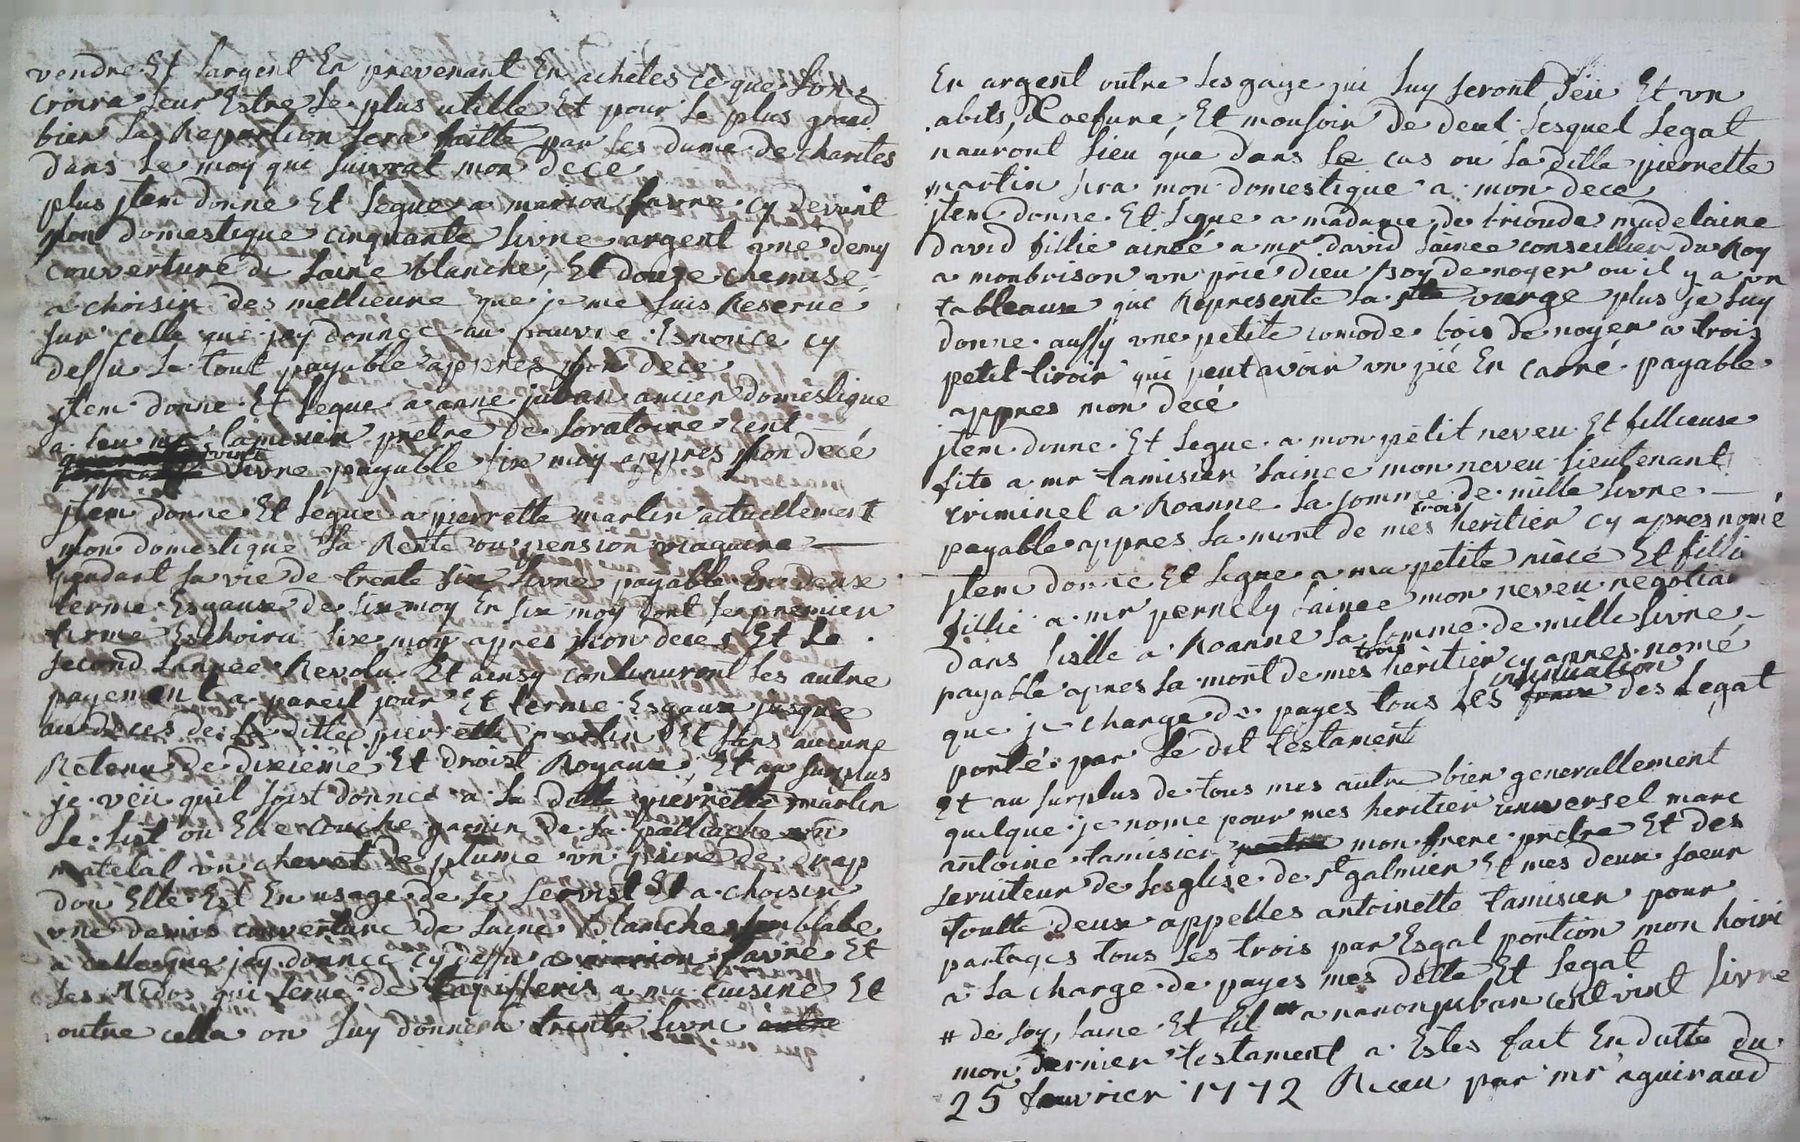 vendre Et largent En prevenant En achetes ce que lon
croira leur Estre le plus utille Et pour le plus grand
bien la Repartion sera faitte par les dame de charites
dans le moy qui suivrat mon decé
plus jtem donne Et legue a marion favre cy devant
mon domestique cinquante livre argent une demy
couverture de laine blanche, Et douze chemise
a choisir des mellieure que je me suis Reservé
sur celle que jey donnee au pauvre Esnoncé cy
dessu le tout payable appres mon decé
jtem donne Et legue a anne juban ancien domestique
a feu mr tamisier pretre de loratoire cent
vint livre payable six moy appres mon decé
jtem donne Et legue a pierrette martin actuellement
mon domestique la Rente ou pension viagaire
pendant sa vie de trente six livre payable En deux
terme Esgaux de six moy En six moy dont le premier
terme Eschoira six moy apres mon deces Et le
second lannee Revolu Et ainsy continuront les autre
payement a pareil jour Et terme Esgaux jusque
au deces de la dittee pierrette martin Et sans aucune
Retenu de dixieme Et droist Royaux, Et au surplus
je veu quil soist donnee a la ditte pierrette martin
le list ou Elle couche garnir de sa palliache un
matelat un chevet de plume un paire de drap
don Elle Est En usage de se servist Et a choisir
une demis couverture de laine blanche semblable
a celle que jey donnee cy dessu a marion favre Et
les Ridos qui serve de tapisseris a ma cuisine Et
outre cella on luy donnera trente livre autre
En argent outre ses gage qui luy seront deu Et un
abits, Coefure, Et mousoir de deul lesquel legat
nauront lieu que dans le cas ou la ditte pierrette
martin sera mon domestique a mon decé
jtem donne Et legue a madame de trionde madelaine
david fillie ainee a mr david lainee conseillier du Roy
a monbrison un prie dieu boy de noyer ou il y a un
tableaux que Represente la ste vierge plus je luy
donne aussy une petite comode bois de noyer a trois
petit tiroir qui peut avoir un pié En carré payable
appres mon decé
jtem donne Et legue a mon petit neveu Et fillieux
fits a mr tamisier lainee mon neveu lieutenant
criminel a Roanne la somme de mille livre
payable appres la mort de mes trois heritier cy apres nomé
jtem donne Et legue a ma petite niece Et filli
fillie a mr pernely lainee mon neveu negotian
dans lislle a Roanne la somme de mille livre
payable apres la mort de mes trois heritier cy apres nomé
que je charge de payes tous les insinuation des legat
porté par le dit testament
et au surplus de tous mes autre bien generallement
quelque je nome pour mes heritier universel marc
antoine tamisier mon frere pretre Et des
serviteur de lesglise de st galmier Et mes deux soeur
toutte deux appelles antoinette tamisier pour
partages tous les trois par Esgal portion mon hoiri
a la charge de payes mes dette Et legat
# de soy, laine Et fil # a nanon juban cent vint livre
mon dernier testament a Estes fait En datte du
25 feuvrier 1772 Receu par mr aguiraud